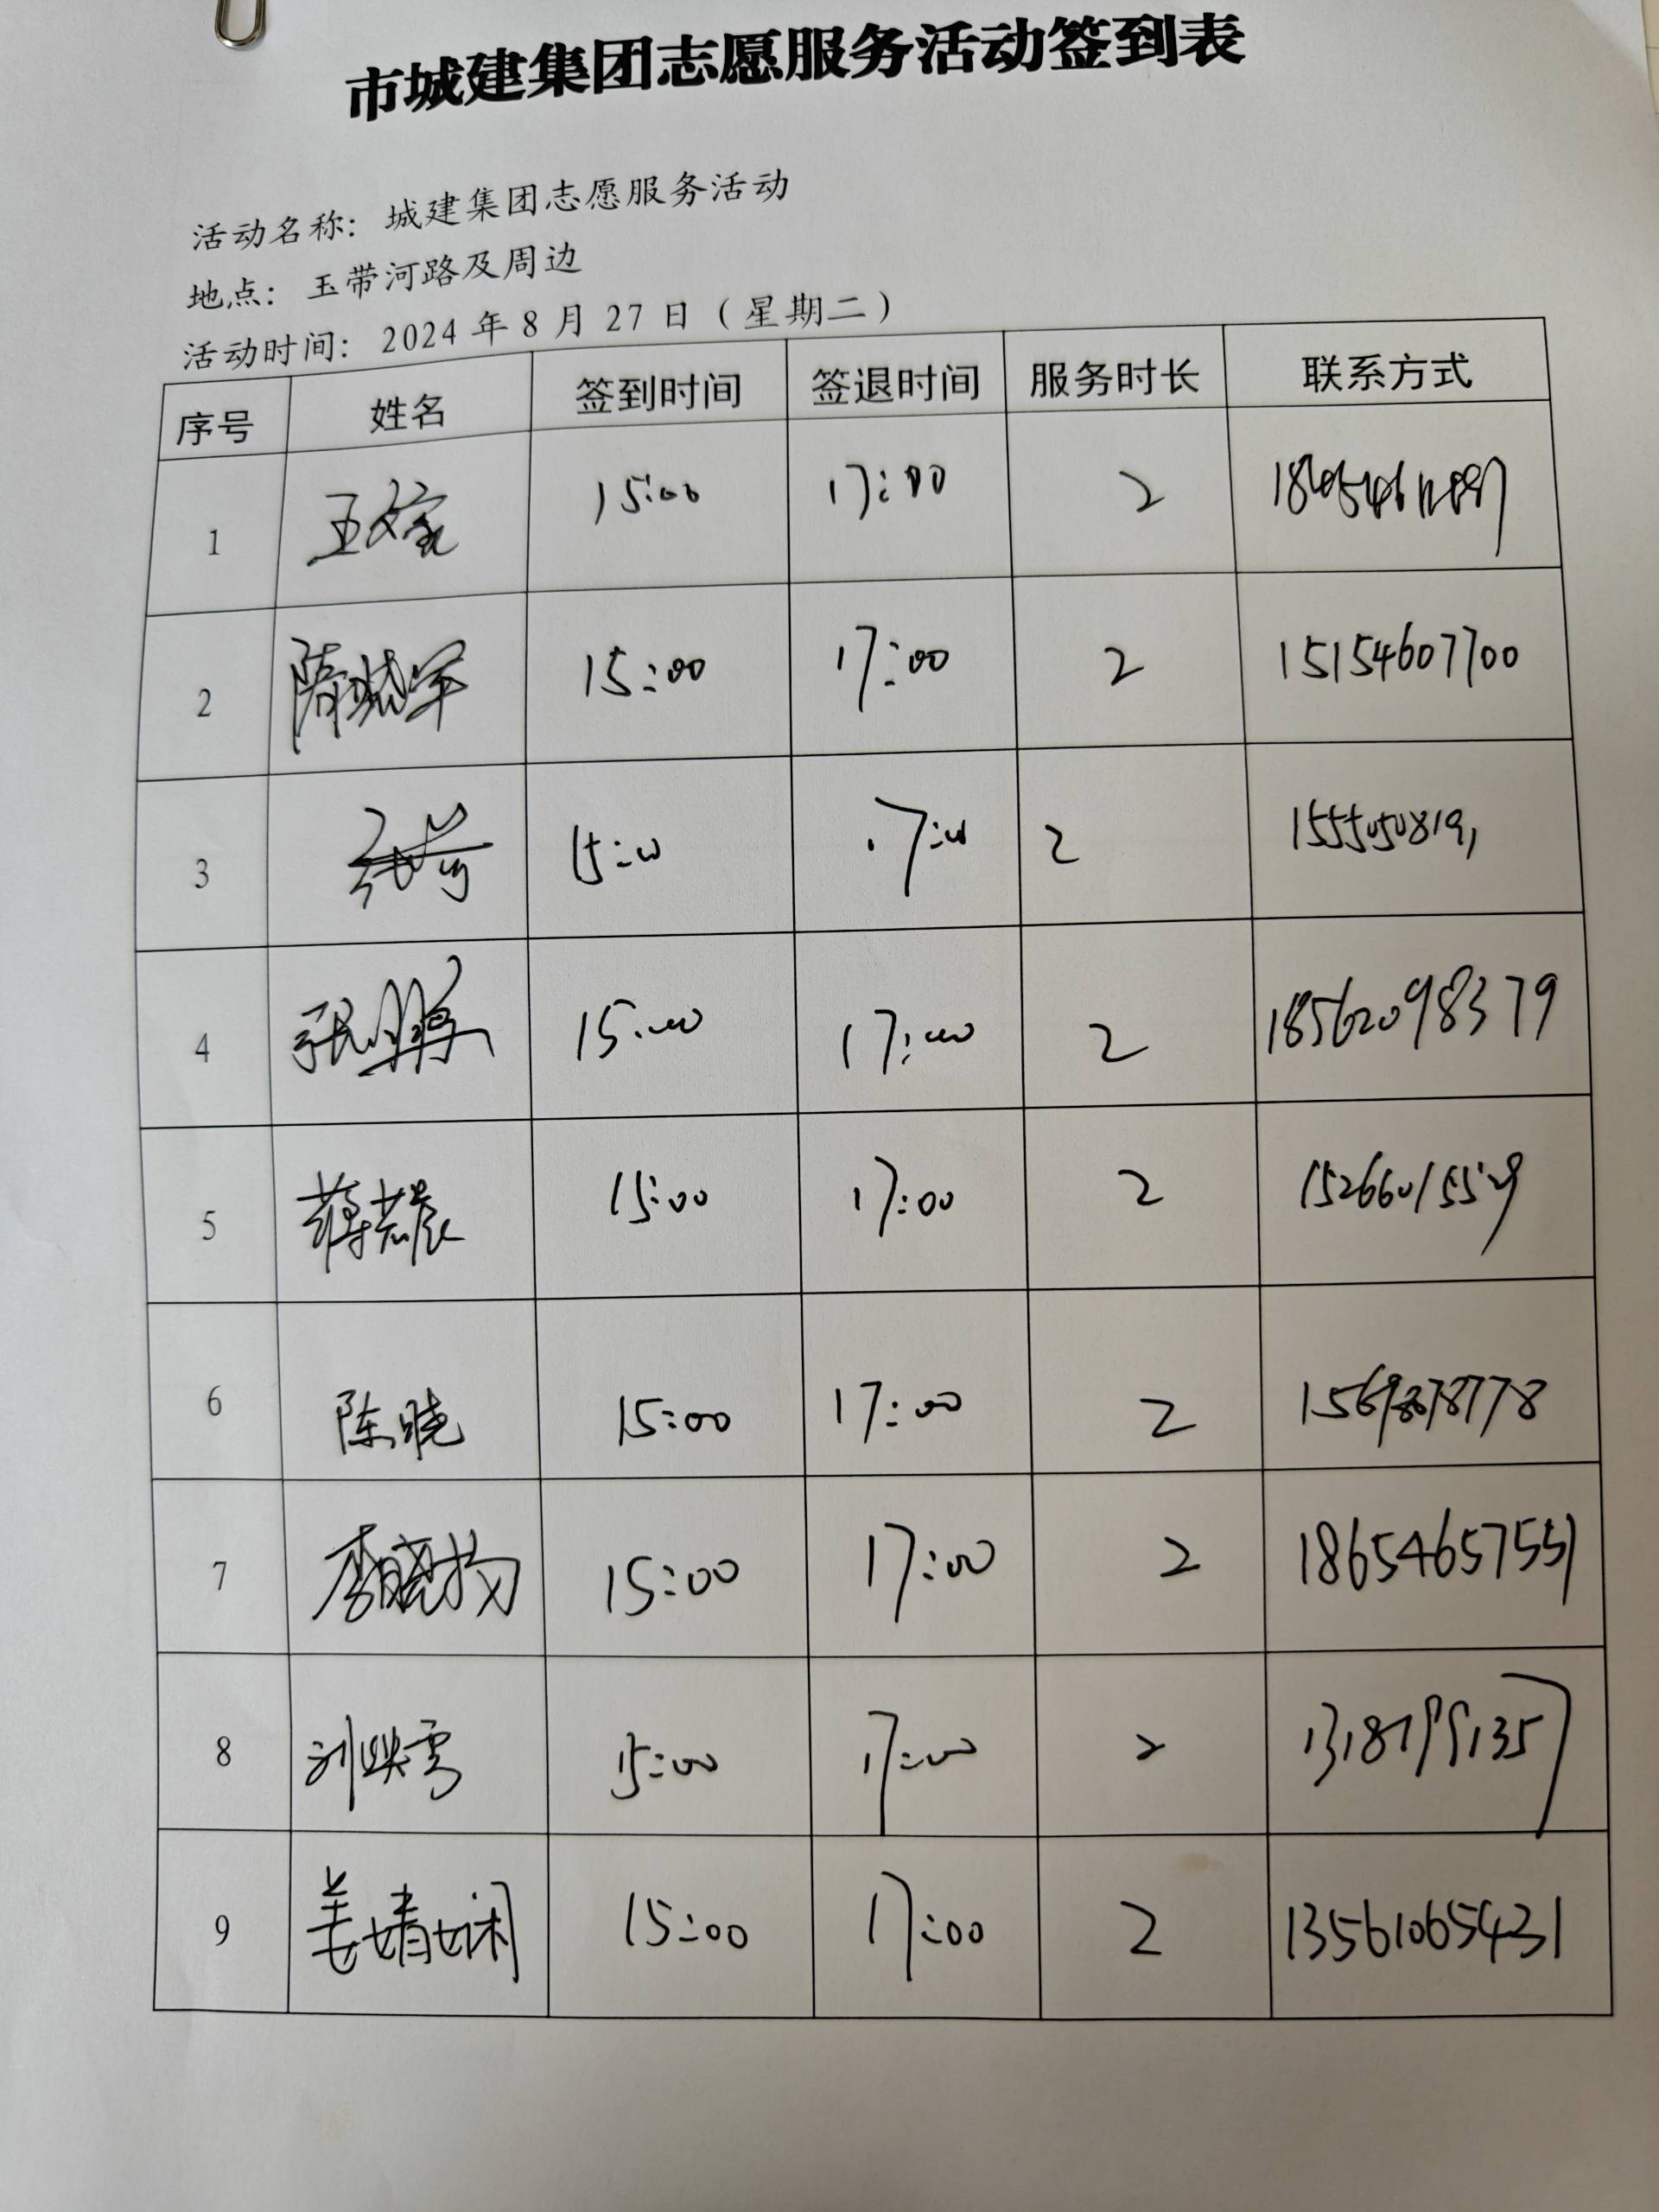 市城建集团志愿服务活动签到表
活动名称：城建集团志愿服务活动
地点：玉带河路及周边
活动时间：2024年8月27日（星期二）
序号 姓名 签到时间 签退时间 服务时长 联系方式
1 15:00 17:00 2
2 隋晓军 15:00 17:00 2 15154607700
3 15:00 17:00 2
4 张鹏 15:00 17:00 2 18562098379
5 15:00 17:00 2
6 陈晓 15:00 17:00 2
7 李晓扬 15:00 17:00 2 18654657551
8 15:00 17:00 2
9 姜婧娴 15:00 17:00 2 13561065431